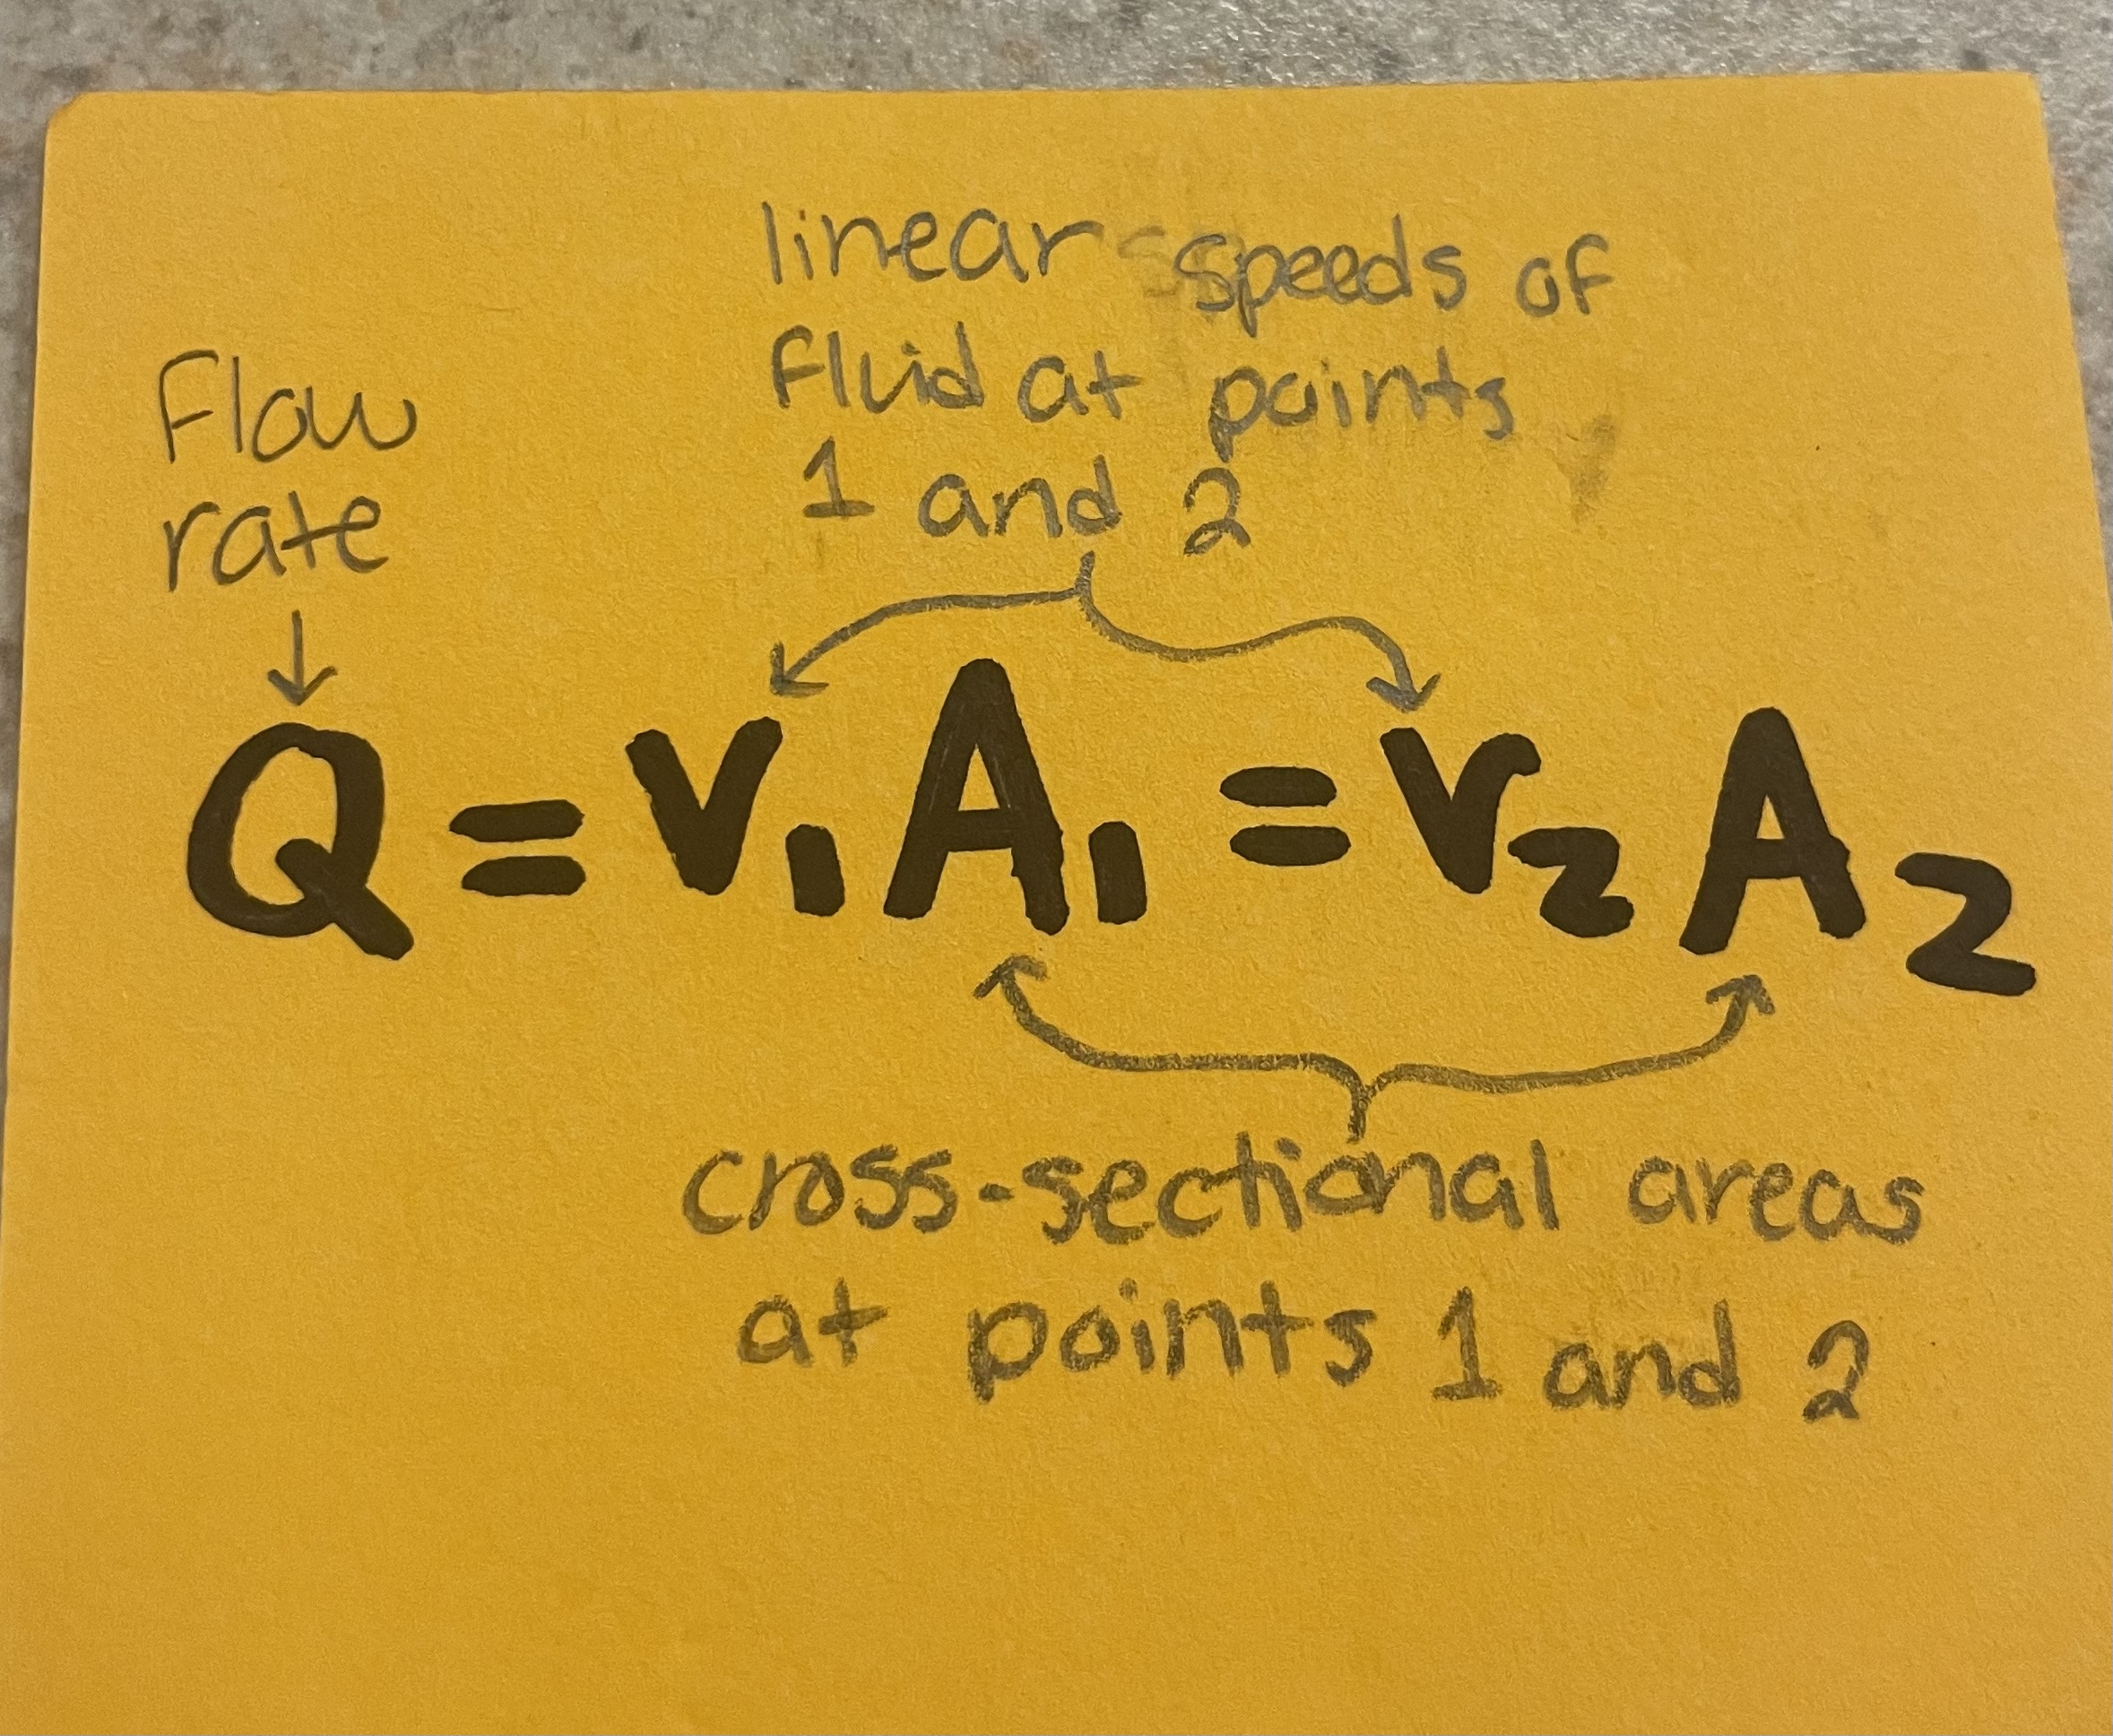 linear speeds of
fluid at points
1 and 2
Flow
rate
Q = v₁A₁ = v₂A₂
cross-sectional areas
at points 1 and 2